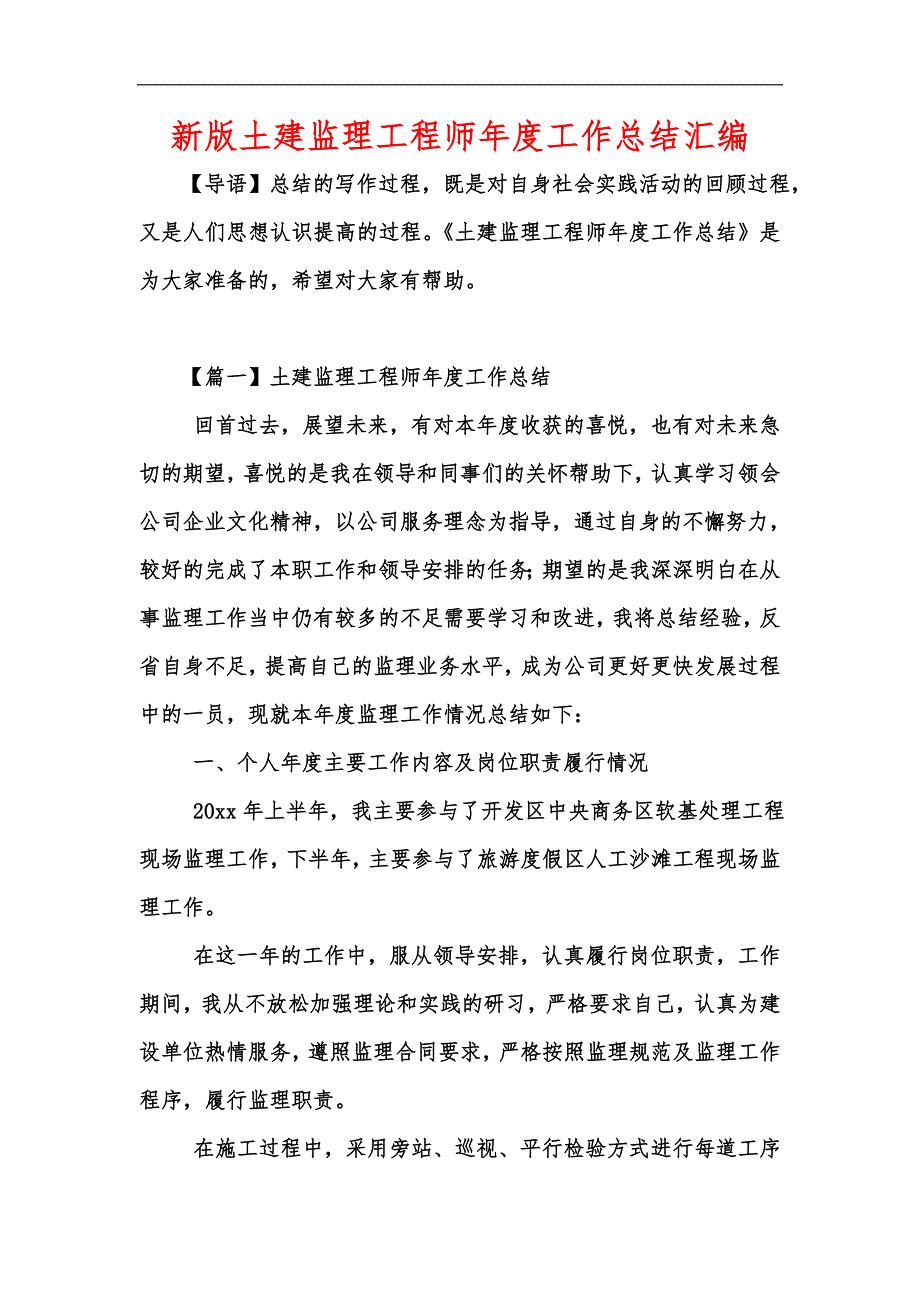 新版土建监理工程师年度工作总结汇编
【导语】总结的写作过程，既是对自身社会实践活动的回顾过程，
又是人们思想认识提高的过程。《土建监理工程师年度工作总结》是
为大家准备的，希望对大家有帮助。
【篇一】土建监理工程师年度工作总结
回首过去，展望未来，有对本年度收获的喜悦，也有对未来急
切的期望，喜悦的是我在领导和同事们的关怀帮助下，认真学习领会
公司企业文化精神，以公司服务理念为指导，通过自身的不懈努力，
较好的完成了本职工作和领导安排的任务；期望的是我深深明白在从
事监理工作当中仍有较多的不足需要学习和改进，我将总结经验，反
省自身不足，提高自己的监理业务水平，成为公司更好更快发展过程
中的一员，现就本年度监理工作情况总结如下：
一、个人年度主要工作内容及岗位职责履行情况
20xx 年上半年，我主要参与了开发区中央商务区软基处理工程
现场监理工作，下半年，主要参与了旅游度假区人工沙滩工程现场监
理工作。
在这一年的工作中，服从领导安排，认真履行岗位职责，工作
期间，我从不放松加强理论和实践的研习，严格要求自己，认真为建
设单位热情服务，遵照监理合同要求，严格按照监理规范及监理工作
程序，履行监理职责。
在施工过程中，采用旁站、巡视、平行检验方式进行每道工序